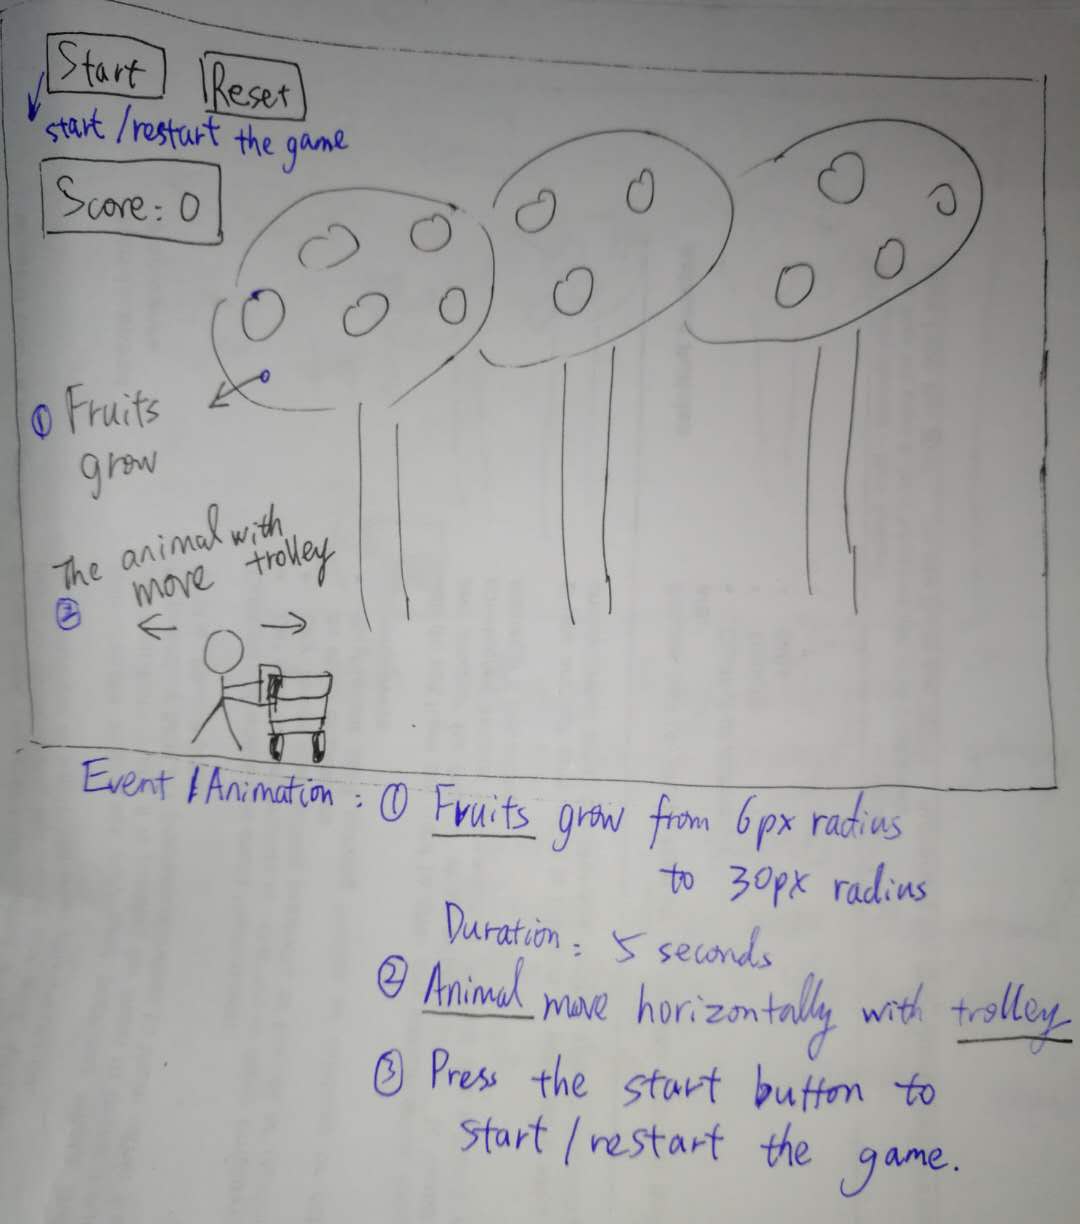 Start
Reset
start / restart the game
Score: 0
① Fruits
grow
The animal with
move trolley
②
Event / Animation : ① Fruits grow from 6px radius
to 30px radius
Duration: 5 seconds
② Animal move horizontally with trolley
③ Press the start button to
start / restart the game.